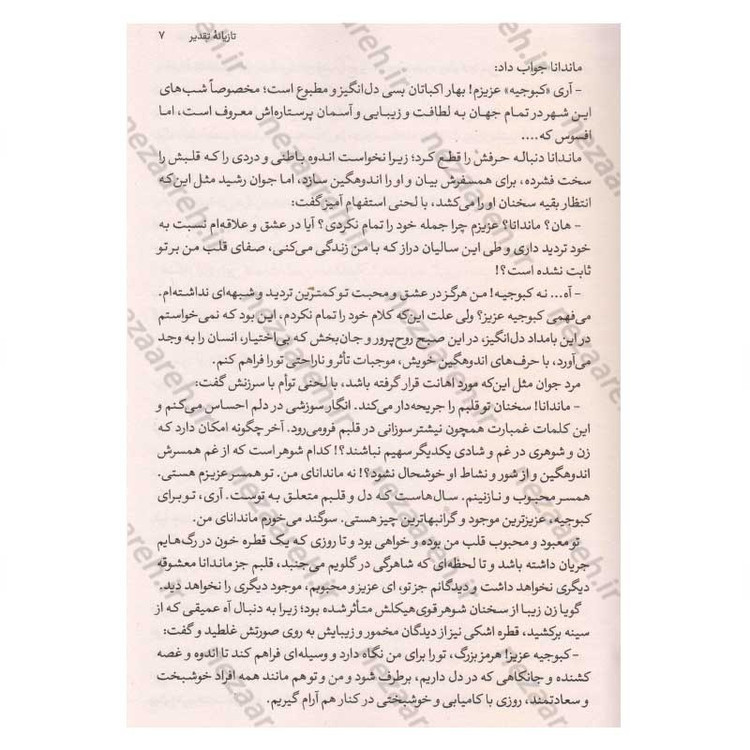 تازیانهٔ تقدیر ۷
ماندانا جواب داد:
- آری «کبوجیه» عزیزم! بهار اکباتان بسی دل‌انگیز و مطبوع است؛ مخصوصاً شب‌های
این شهر در تمام جهان به لطافت و زیبایی و آسمان پرستاره‌اش معروف است، اما
افسوس که....
ماندانا دنباله حرفش را قطع کرد؛ زیرا نخواست اندوه باطنی و دردی را که قلبش را
سخت فشرده، برای همسفرش بیان و او را اندوهگین سازد، اما جوان رشید مثل این‌که
انتظار بقیه سخنان او را می‌کشد، با لحنی استفهام آمیز گفت:
- هان؟ ماندانا؟ عزیزم چرا جمله خود را تمام نکردی؟ آیا در عشق و علاقه‌ام نسبت به
خود تردید داری و طی این سالیان دراز که با من زندگی می‌کنی، صفای قلب من بر تو
ثابت نشده است؟!
- آه... نه کبوجیه! من هرگز در عشق و محبت تو کمترین تردید و شبهه‌ای نداشته‌ام.
می‌فهمی کبوجیه عزیز؟ ولی علت این‌که کلام خود را تمام نکردم، این بود که نمی‌خواستم
در این بامداد دل‌انگیز، در این صبح روح‌پرور و جان‌بخش که بی‌اختیار، انسان را به وجد
می‌آورد، با حرف‌های اندوهگین خویش، موجبات تأثر و ناراحتی تو را فراهم کنم.
مرد جوان مثل این‌که مورد اهانت قرار گرفته باشد، با لحنی توأم با سرزنش گفت:
- ماندانا! سخنان تو قلبم را جریحه‌دار می‌کند. انگار سوزشی در دلم احساس می‌کنم و
این کلمات غمبارت همچون نیشتر سوزانی در قلبم فرومی‌رود. آخر چگونه امکان دارد که
زن و شوهری در غم و شادی یکدیگر سهیم نباشند؟! کدام شوهر است که از غم همسرش
اندوهگین و از شور و نشاط او خوشحال نشود؟! نه ماندانای من. تو همسر عزیزم هستی.
همسر محبوب و نازنینم. سال‌هاست که دل و قلبم متعلق به توست. آری، تو برای
کبوجیه، عزیزترین موجود و گرانبهاترین چیز هستی. سوگند می‌خورم ماندانای من.
تو معبود و محبوب قلب من بوده و خواهی بود و تا روزی که یک قطره خون در رگ‌هایم
جریان داشته باشد و تا لحظه‌ای که شاهرگی در گلویم می‌جنبد، قلبم جز ماندانا معشوقه
دیگری نخواهد داشت و دیدگانم جز تو، ای عزیز و محبوبم، موجود دیگری را نخواهد دید.
گویا زن زیبا از سخنان شوهر قوی‌هیکلش متأثر شده بود؛ زیرا به دنبال آه عمیقی که از
سینه برکشید، قطره اشکی نیز از دیدگان مخمور و زیبایش به روی صورتش غلطید و گفت:
- کبوجیه عزیز! هرمز بزرگ، تو را برای من نگاه دارد و وسیله‌ای فراهم کند تا اندوه و غصه
کشنده و جانکاهی که در دل داریم، برطرف شود و من و تو هم مانند همه افراد خوشبخت
و سعادتمند، روزی با کامیابی و خوشبختی در کنار هم آرام گیریم.
nezaareh.ir